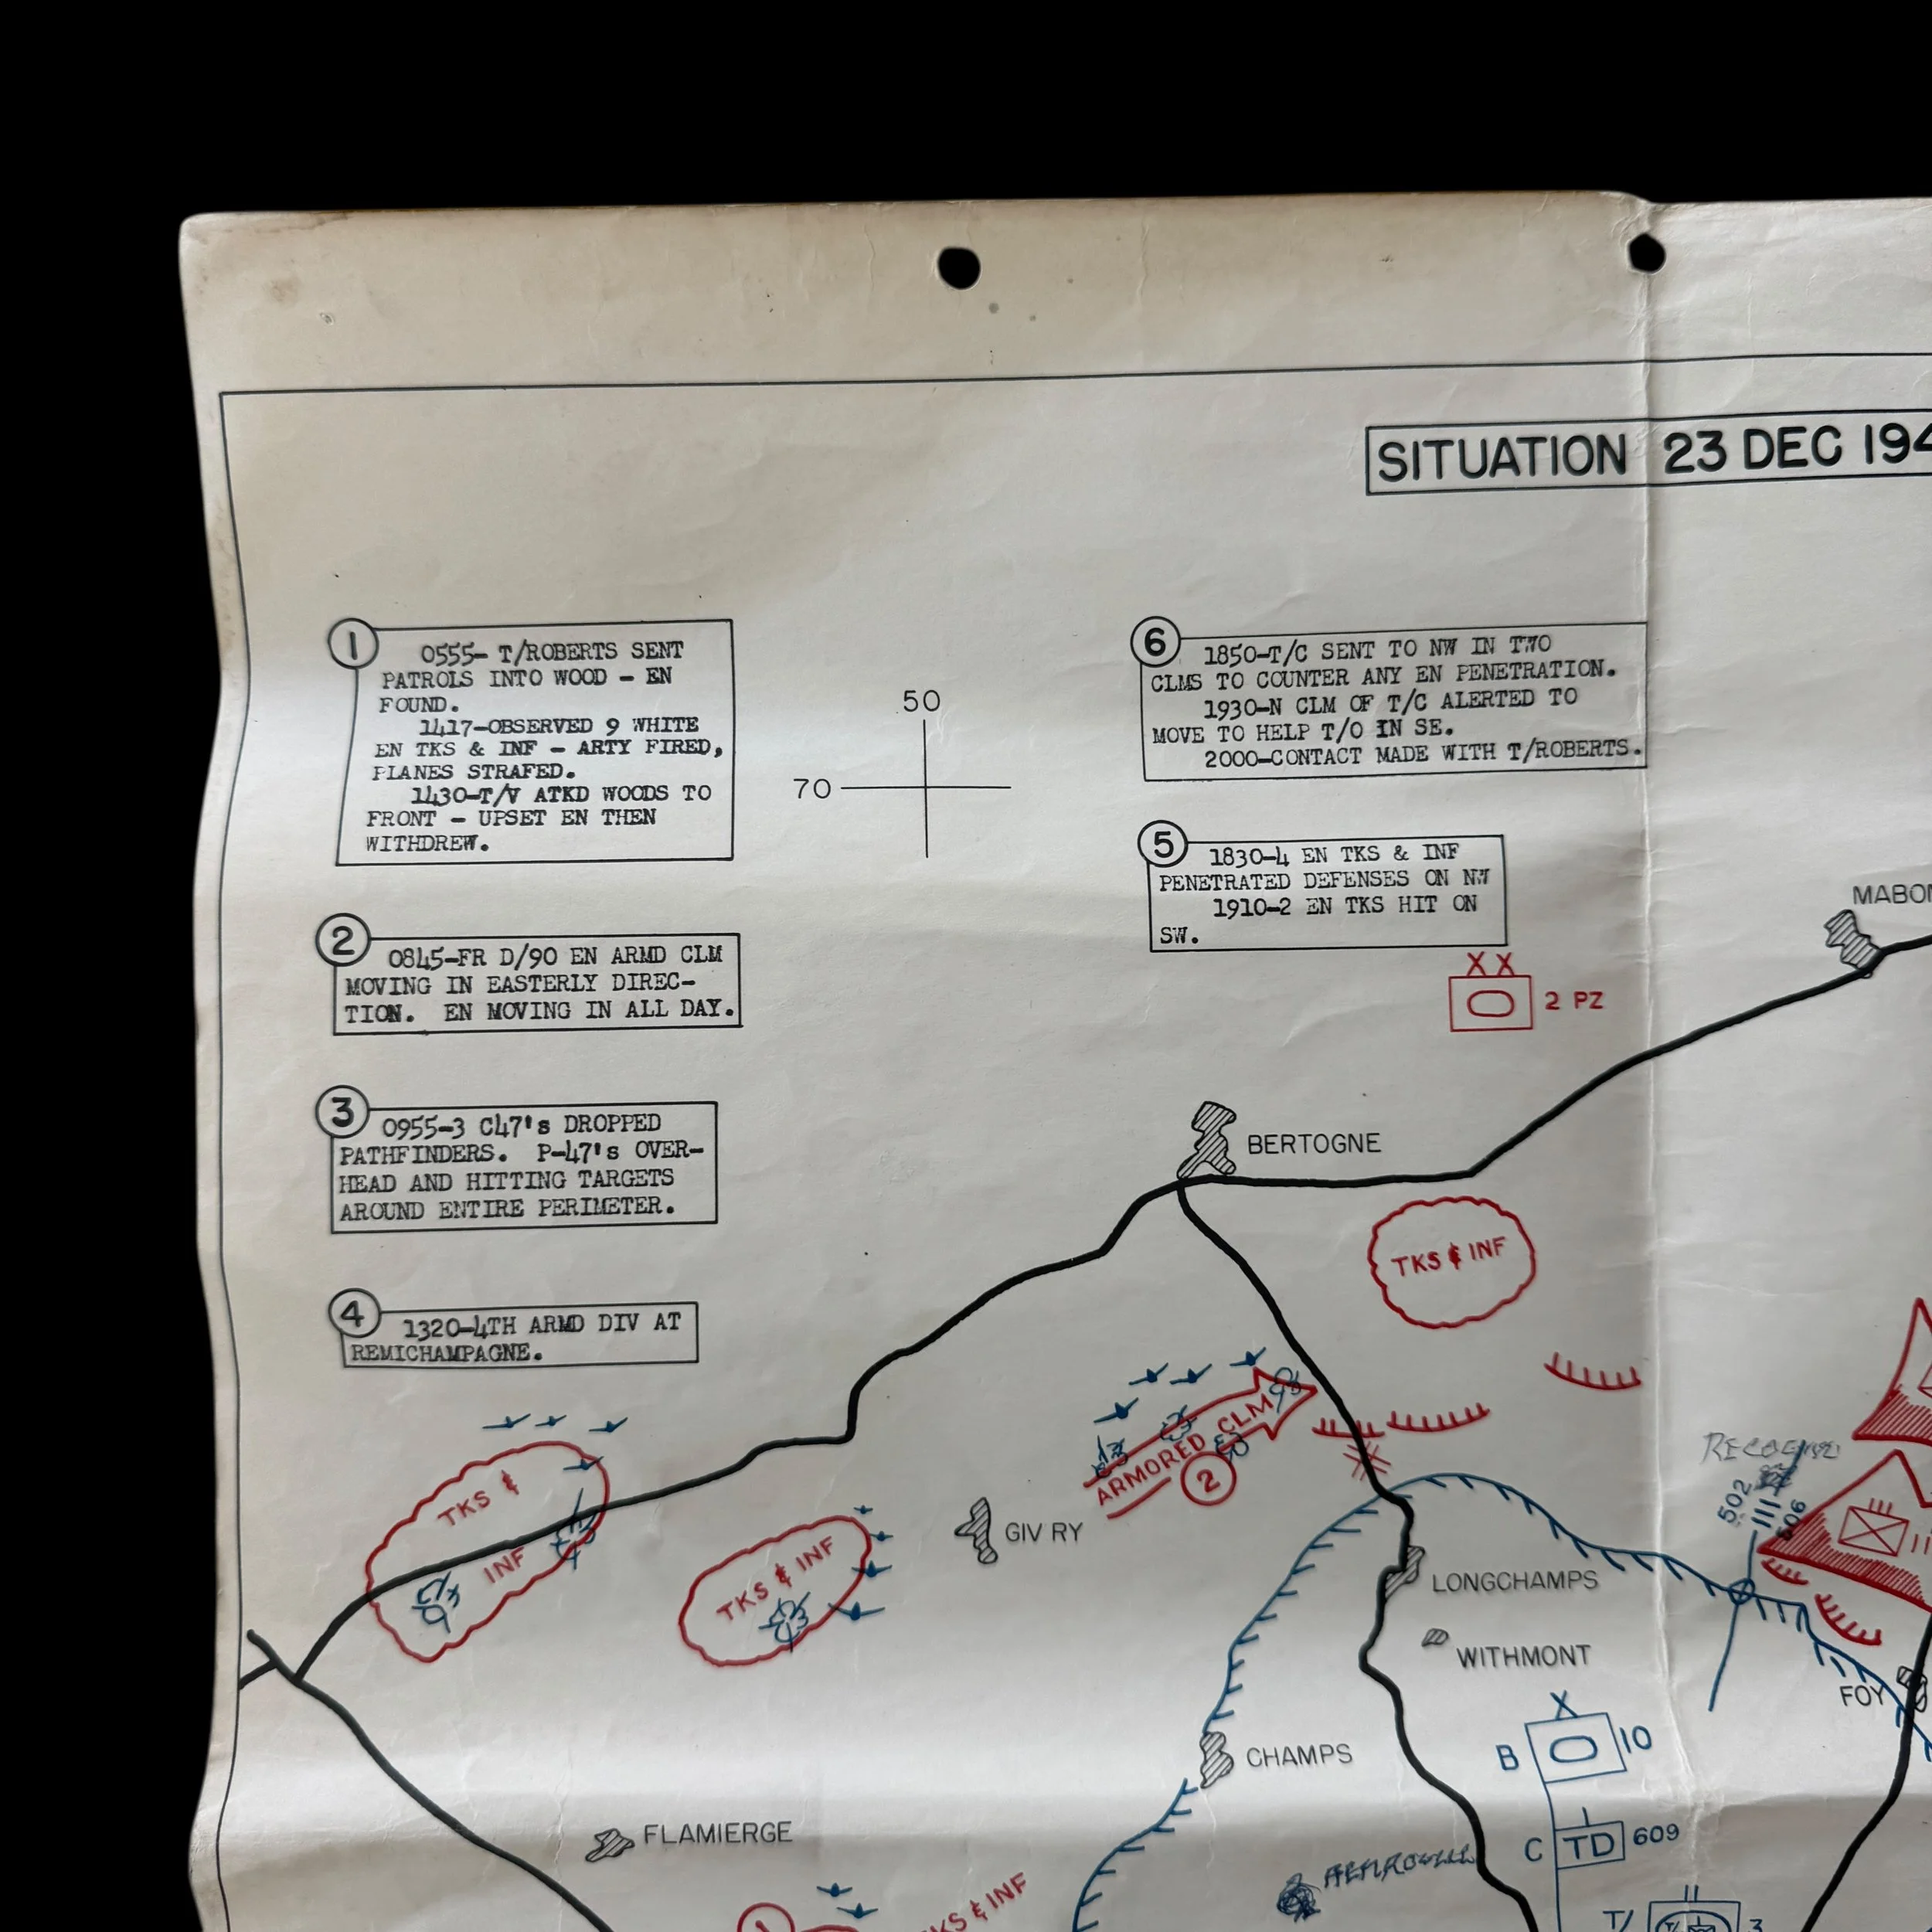 SITUATION 23 DEC 194
1 0555- T/ROBERTS SENT
PATROLS INTO WOOD - EN
FOUND.
1417-OBSERVED 9 WHITE
EN TKS & INF - ARTY FIRED,
PLANES STRAFED.
1430-T/V ATKD WOODS TO
FRONT - UPSET EN THEN
WITHDREW.
50
70
6 1850-T/C SENT TO NW IN TWO
CLMS TO COUNTER ANY EN PENETRATION.
1930-N CLM OF T/C ALERTED TO
MOVE TO HELP T/O IN SE.
2000-CONTACT MADE WITH T/ROBERTS.
5 1830-4 EN TKS & INF
PENETRATED DEFENSES ON NW
1910-2 EN TKS HIT ON
SW.
2 0845-FR D/90 EN ARMD CLM
MOVING IN EASTERLY DIREC-
TION. EN MOVING IN ALL DAY.
XX
2 PZ
MABON
3 0955-3 C47's DROPPED
PATHFINDERS. P-47's OVER-
HEAD AND HITTING TARGETS
AROUND ENTIRE PERIMETER.
BERTOGNE
TKS & INF
4 1320-4TH ARMD DIV AT
REMICHAMPAGNE.
ARMORED CLM
2
TKS &
INF
TKS & INF
GIVRY
RECOGNE
502
III
506
III
LONGCHAMPS
WITHMONT
FOY
X
B 10
CHAMPS
I
C TD 609
FLAMIERGE
HEMROULLE
II
T/ 3
1
KS & INF